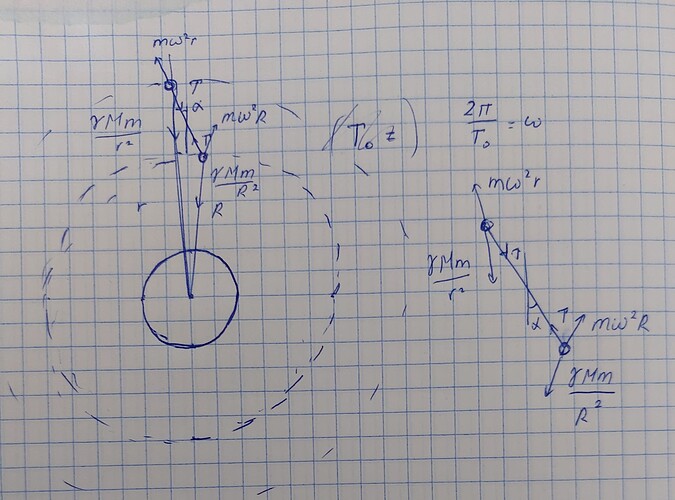 mω²r
T
α
γMm/r²
T
mω²R
γMm/R²
r
R
(T₀ z)
2π/T₀ = ω
mω²r
T
γMm/r²
α
T
mω²R
γMm/R²